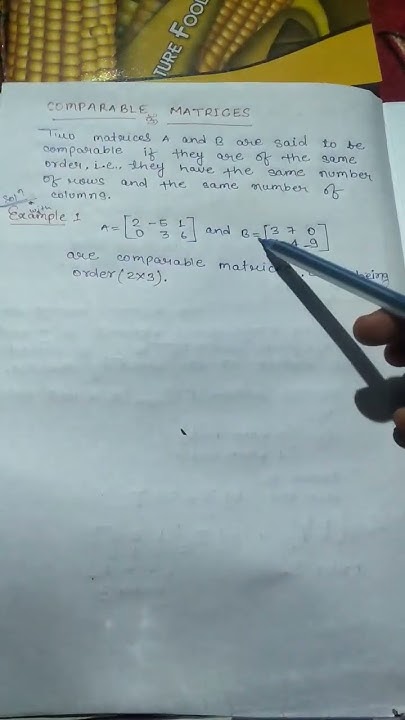 TURE FOOL
COMPARABLE MATRICES
Two matrices A and B are said to be
comparable if they are of the same
order, i.e., they have the same number
of rows and the same number of
columns.
Soln with
Example 1
A = [2 -5 1] and B = [3 7 0]
[0 3 6] 4 -9]
are comparable matrices, being
order (2x3).